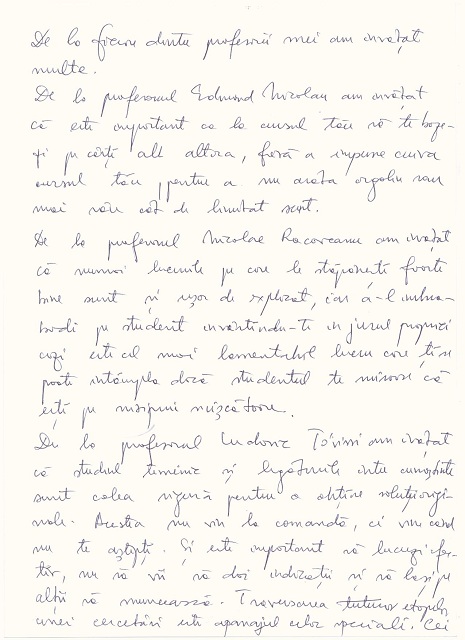 De la fiecare dintre profesorii mei am învățat
multe.
De la profesorul Edmond Nicolau am învățat
că este important ca la cursul tău să te baze-
zi pe cărți ale altora, fără a impune cuiva
cursul tău, pentru a nu arăta orgoliu sau
mai rău cât de limitat sunt.
De la profesorul Nicolae Racoveanu am învățat
că numai lucrurile pe care le stăpânești foarte
bine sunt și ușor de explicat, iar a-l îmbro-
bodi pe student învârtindu-te în jurul propriei
cozi este cel mai lamentabil lucru care ți se
poate întâmpla dacă studentul te miroase că
ești pe nisipuri mișcătoare.
De la profesorul Ludovic Tövissi am învățat
că studiul temeinic și legăturile între cunoștințe
sunt calea sigură pentru a obține soluții origi-
nale. Acestea nu vin la comandă, ci vin când
nu te aștepți. Și este important să lucrezi efec-
tiv, nu să vii să dai indicații și să lași pe
alții să muncească. Traversarea tuturor etapelor
unei cercetări este apanajul celor speciali. Cei